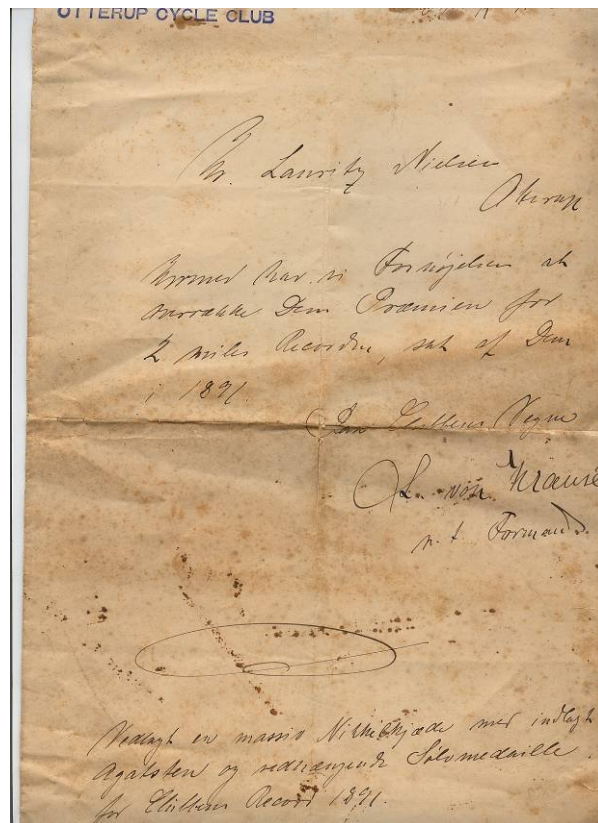 OTTERUP CYCLE CLUB
Hr. Lauritz Nielsen
Oterup
Hermed har vi Fornøjelsen at
overrække Dem Præmien for
2 miles Recorden, sat af Dem
i 1891.
Paa Clubbens Vegne
L. von Krause
n. t. Formand.
Vedlagt en massiv Nikkelkjæde med indlagt
Agatsten og vedhængende Sølvmedaille
for Clubbens Record 1891.